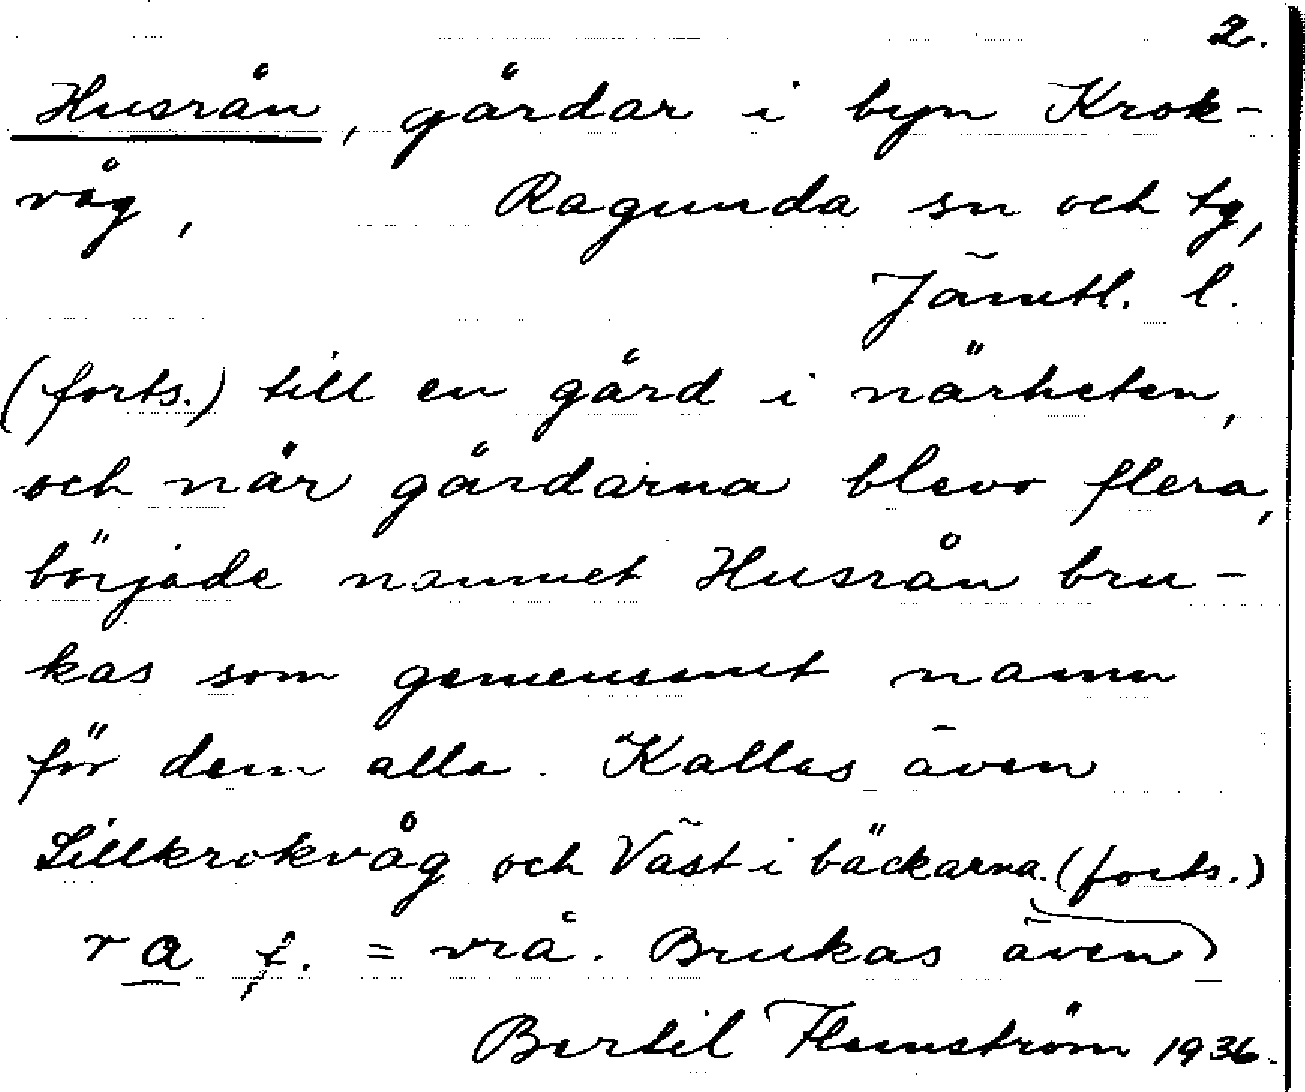 2.
Husrån, gårdar i byn Krok-
våg, Ragunda sn och tg,
Jämtl. l.
(forts.) till en gård i närheten,
och när gårdarna blevo flera,
började namnet Husrån bru-
kas som gemensamt namn
för dem alla. Kallas även
Lillkrokvåg och Väst i bäckarna. (forts.)
ra f. = vrå. Brukas även
Bertil Flemström 1936.